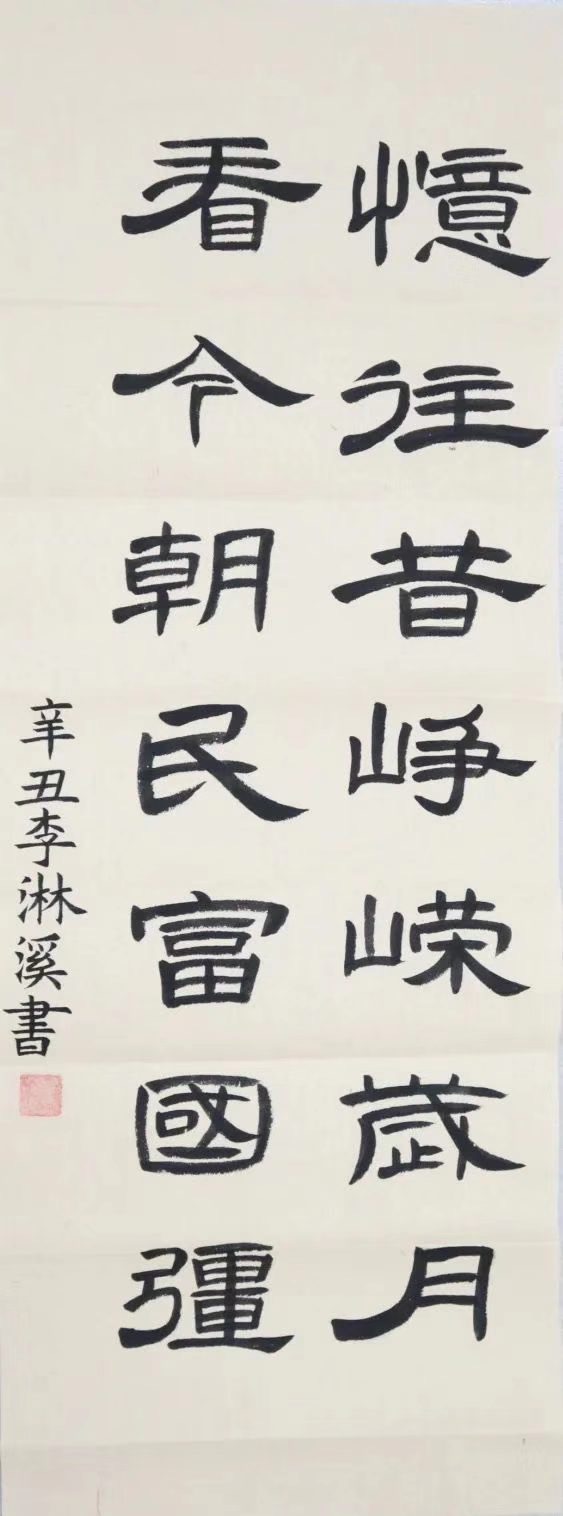 憶往昔崢嶸歲月
看今朝民富國彊
辛丑李淋溪書